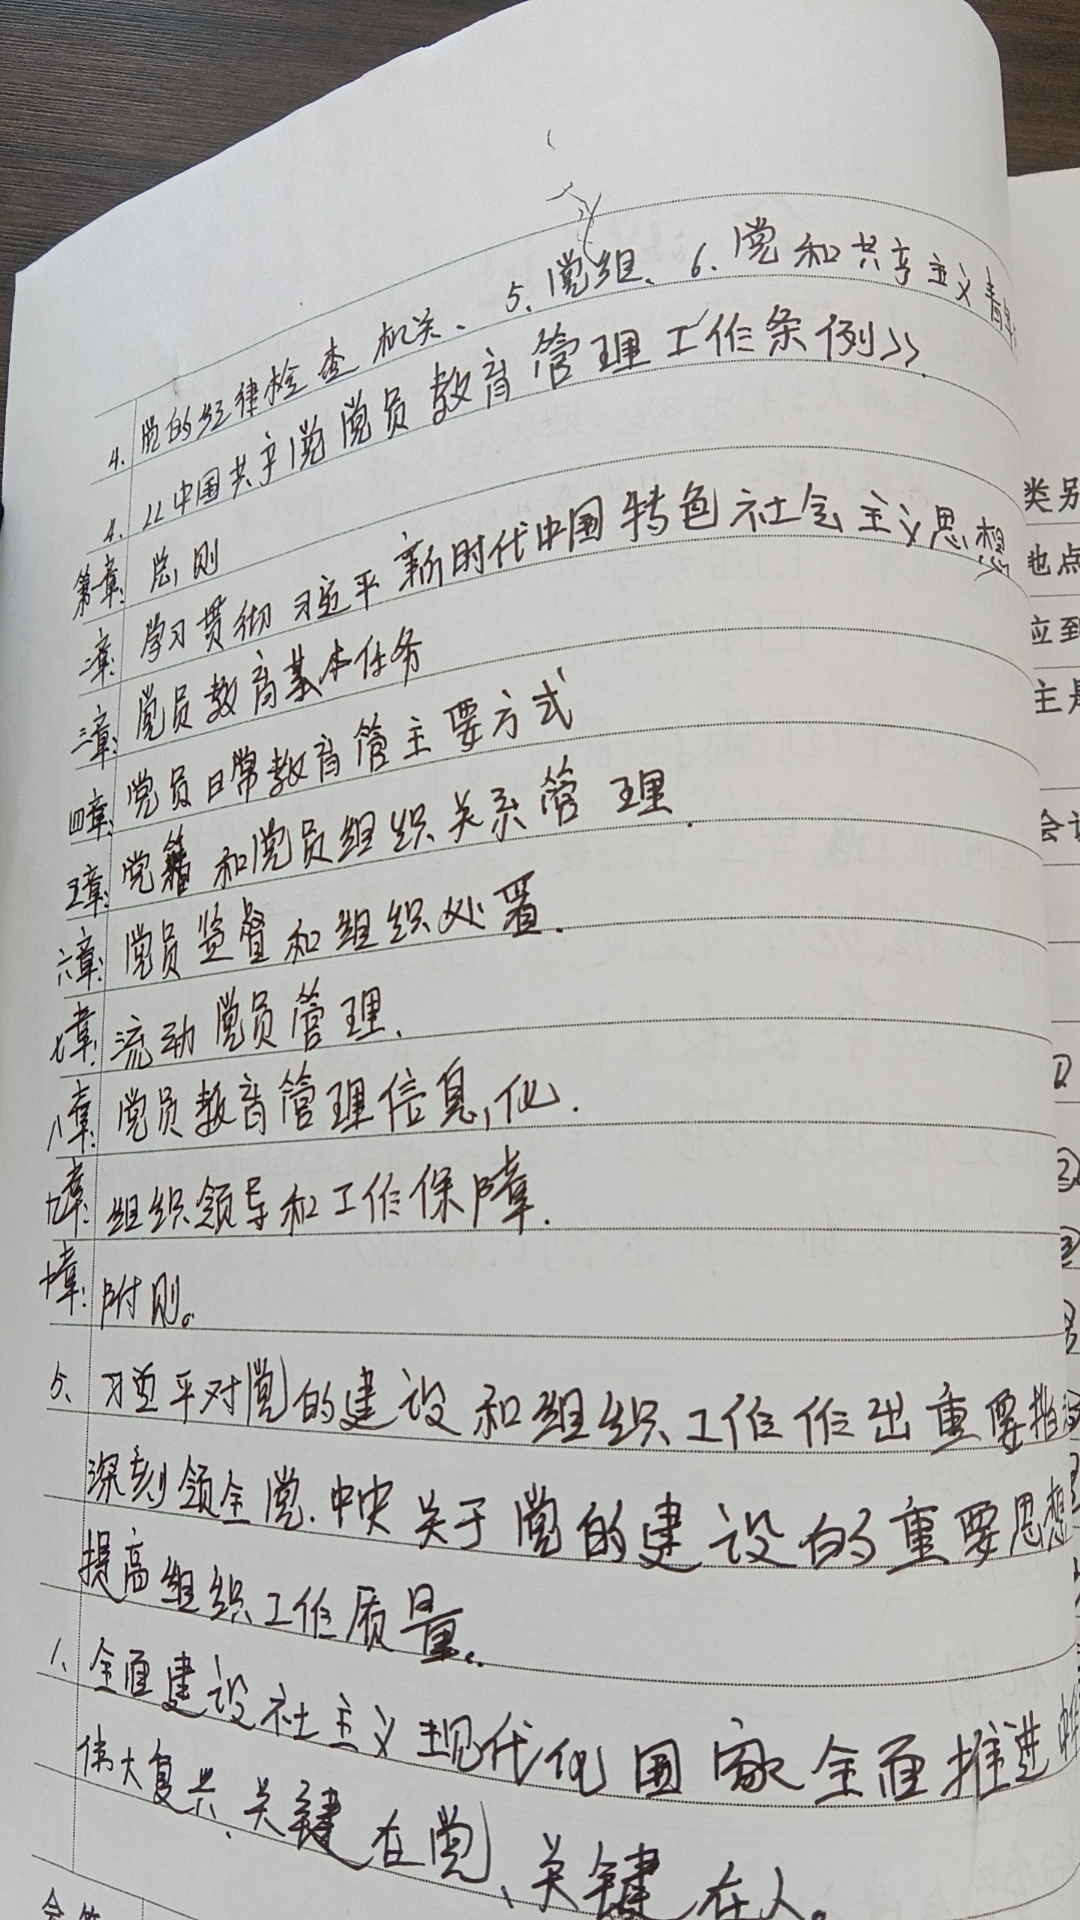 4. 党的纪律检查机关、5、党组、6、党和共产主义青
4.《中国共产党党员教育管理工作条例》
第一章: 总则
二章: 学习贯彻习近平新时代中国特色社会主义思想
三章: 党员教育基本任务
四章: 党员日常教育管主要方式
五章: 党籍和党员组织关系管理.
六章: 党员监督和组织处置.
七章: 流动党员管理.
八章: 党员教育管理信息化.
九章: 组织领导和工作保障.
十章: 附则。
5、习近平对党的建设和组织工作作出重要指
深刻领全党.中央关于党的建设的重要思想
提高组织工作质量.
1、全面建设社主义现代化国家全面推进中
伟大复兴.关键在党、关键在人。
类别
地点
应到
主
会
②
③
会